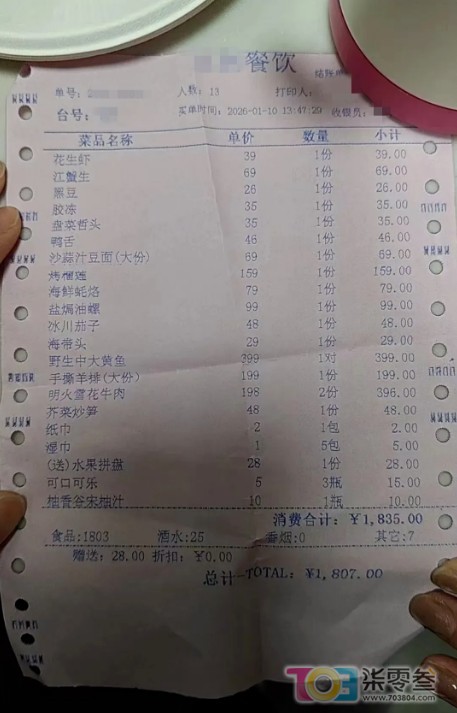 餐饮
单号: 人数: 13 打印人:
台号: 买单时间: 2026-01-10 13:47:29 收银员:
菜品名称 单价 数量 小计
花生虾 39 1份 39.00
江蟹生 69 1份 69.00
黑豆 26 1份 26.00
胶冻 35 1份 35.00
盘菜哲头 35 1份 35.00
鸭舌 46 1份 46.00
沙蒜汁豆面(大份) 69 1份 69.00
烤榴莲 159 1份 159.00
海鲜蚝烙 79 1份 79.00
盐焗油螺 99 1份 99.00
冰川茄子 48 1份 48.00
海带头 29 1份 29.00
野生中大黄鱼 399 1对 399.00
手撕羊排(大份) 199 1份 199.00
明火雪花牛肉 198 2份 396.00
芥菜炒笋 48 1份 48.00
纸巾 2 1包 2.00
湿巾 1 5包 5.00
(送)水果拼盘 28 1份 28.00
可口可乐 5 3瓶 15.00
柚香谷宋柚汁 10 1瓶 10.00
消费合计: ¥1,835.00
食品:1803 酒水:25 香烟:0 其它:7
赠送: 28.00 折扣: ¥0.00
总计-TOTAL: ¥1,807.00
703 柒零叁
www.703804.com